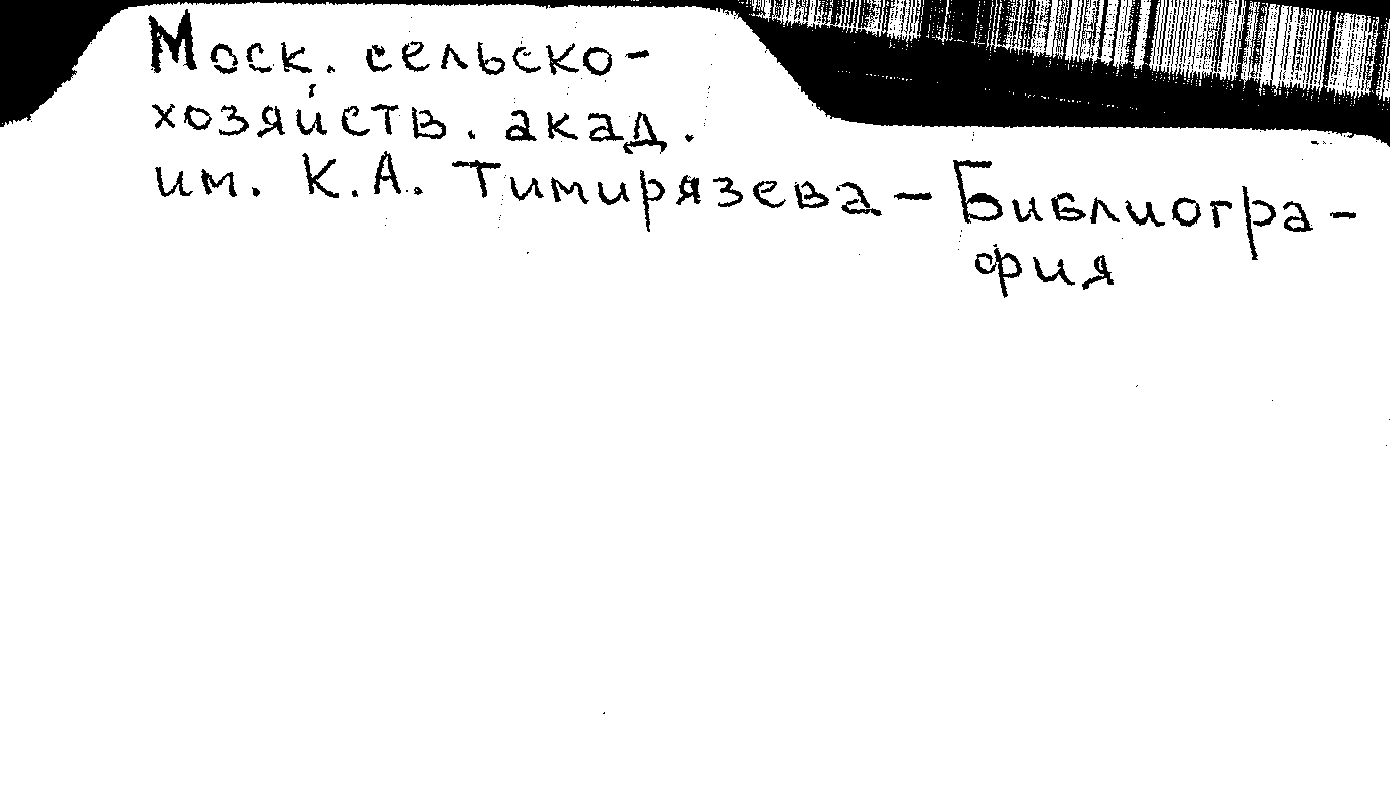 Моск. сельско-
хозяйств. акад.
им. К.А. Тимирязева – Библиогра-
фия